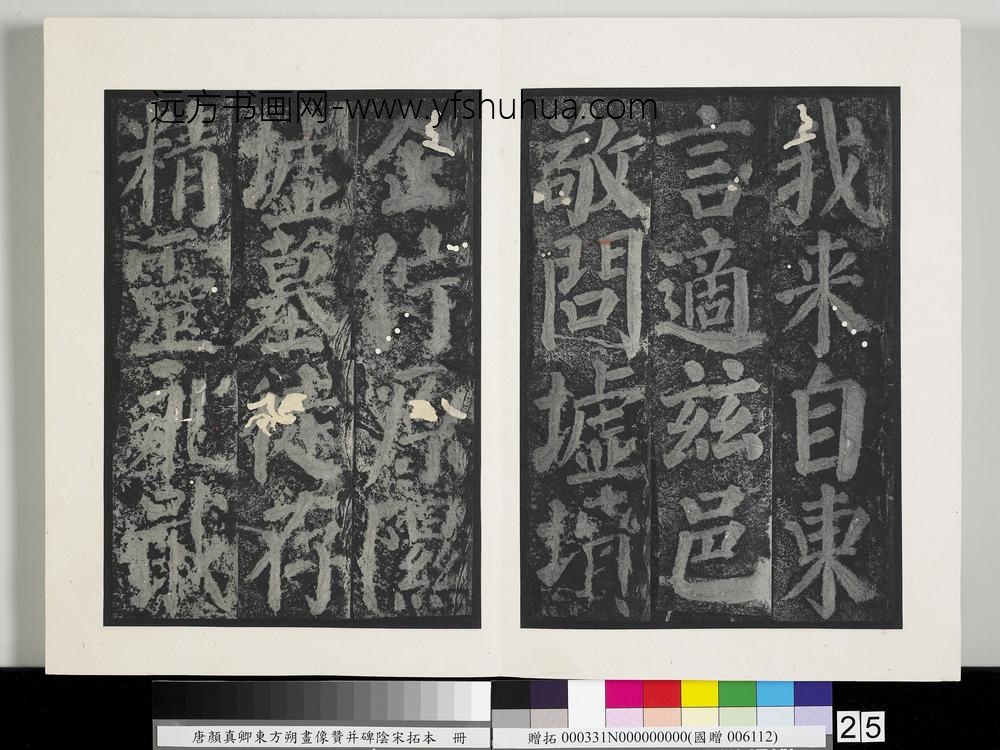 远方书画网-www.yfshuhua.com
我来自東
言適茲邑
敬問墟墳
企佇原隰
墟墓徒存
精靈永戢
唐顏真卿東方朔畫像贊并碑陰宋拓本 冊
贈拓 000331N000000000(國贈 006112)
25